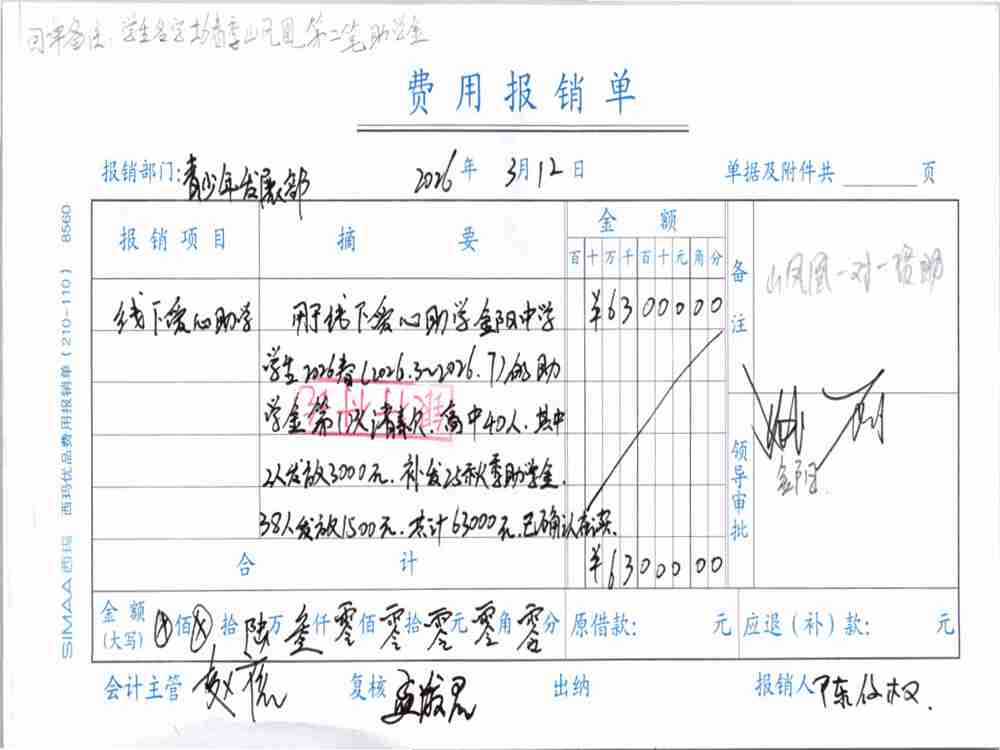 回单备注:学生名字+春季山凤凰第二笔助学金
费用报销单
报销部门:青少年发展部 2026年3月12日 单据及附件共 页
报销项目 摘要 金额
百十万千百十元角分
备注 山凤凰一对一资助
线下爱心助学 用于线下爱心助学金阳中学 ¥6300000
学生2026春(2026.3~2026.7)的助
学金第1次请款,高中40人.其中
2人发放3000元.补发25秋季助学金.
38人发放1500元.共计63000元.已确认在读.
领导审批 金阳
银行付讫
合计 ¥6300000
金额(大写) ⊗佰⊗拾陆万叁仟零佰零拾零元零角零分 原借款: 元 应退(补)款: 元
会计主管 复核 出纳 报销人
SIMAA 西玛 西玛优品费用报销单(210-110) 8560